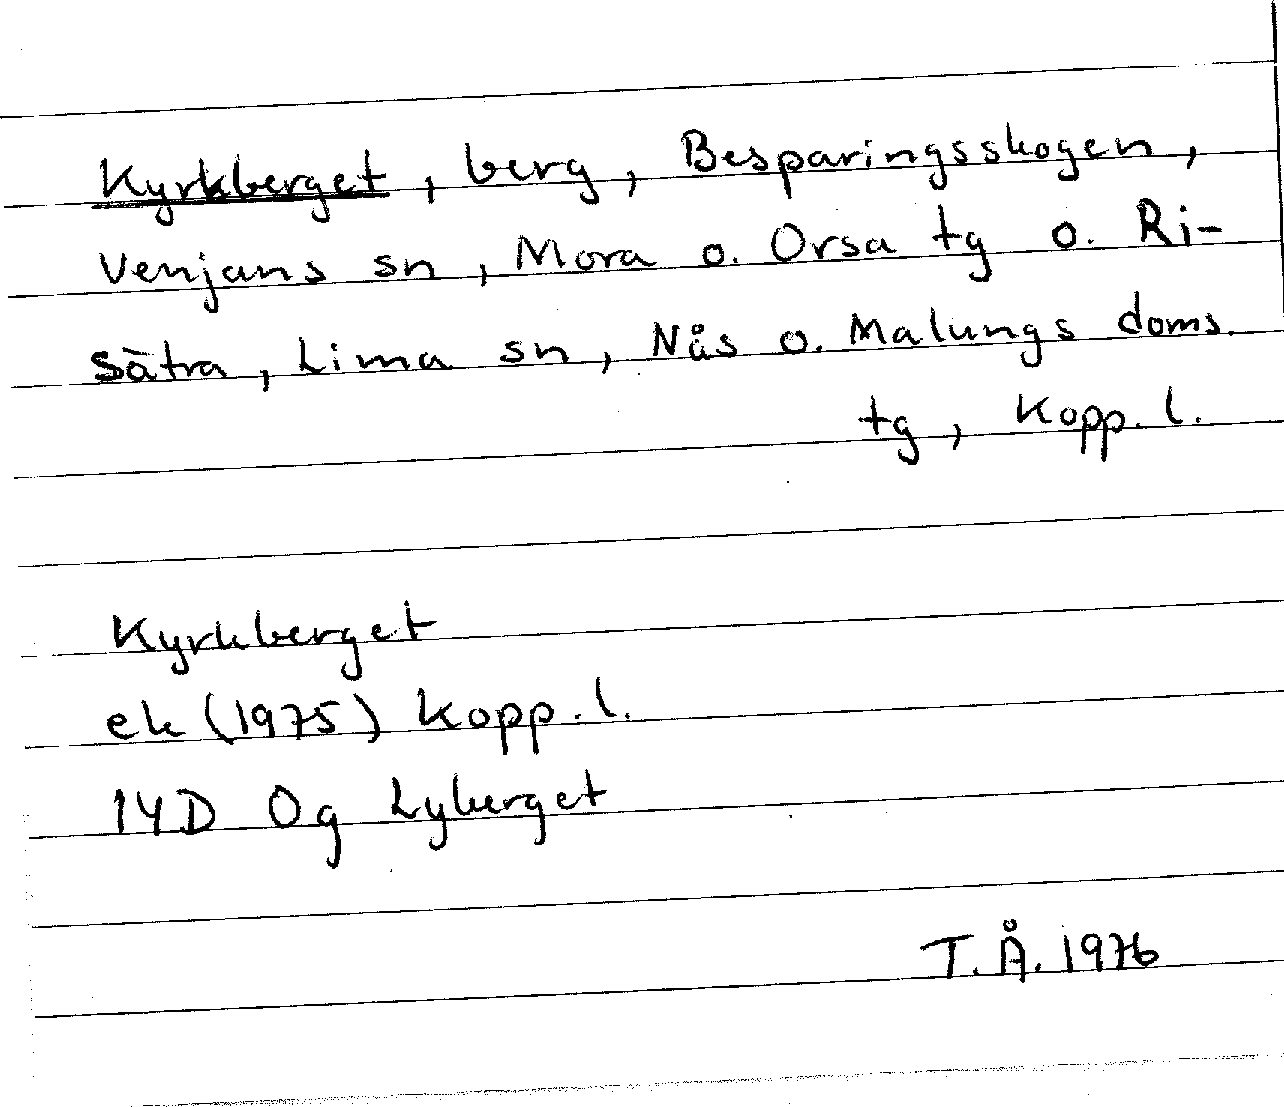 Kyrkberget, berg, Besparingsskogen,
Venjans sn, Mora o. Orsa tg o. Ri-
sätra, Lima sn, Nås o. Malungs doms.
tg, Kopp. l.
Kyrkberget
ek (1975) Kopp. l.
14D 0g Lyberget
T.Å. 1976